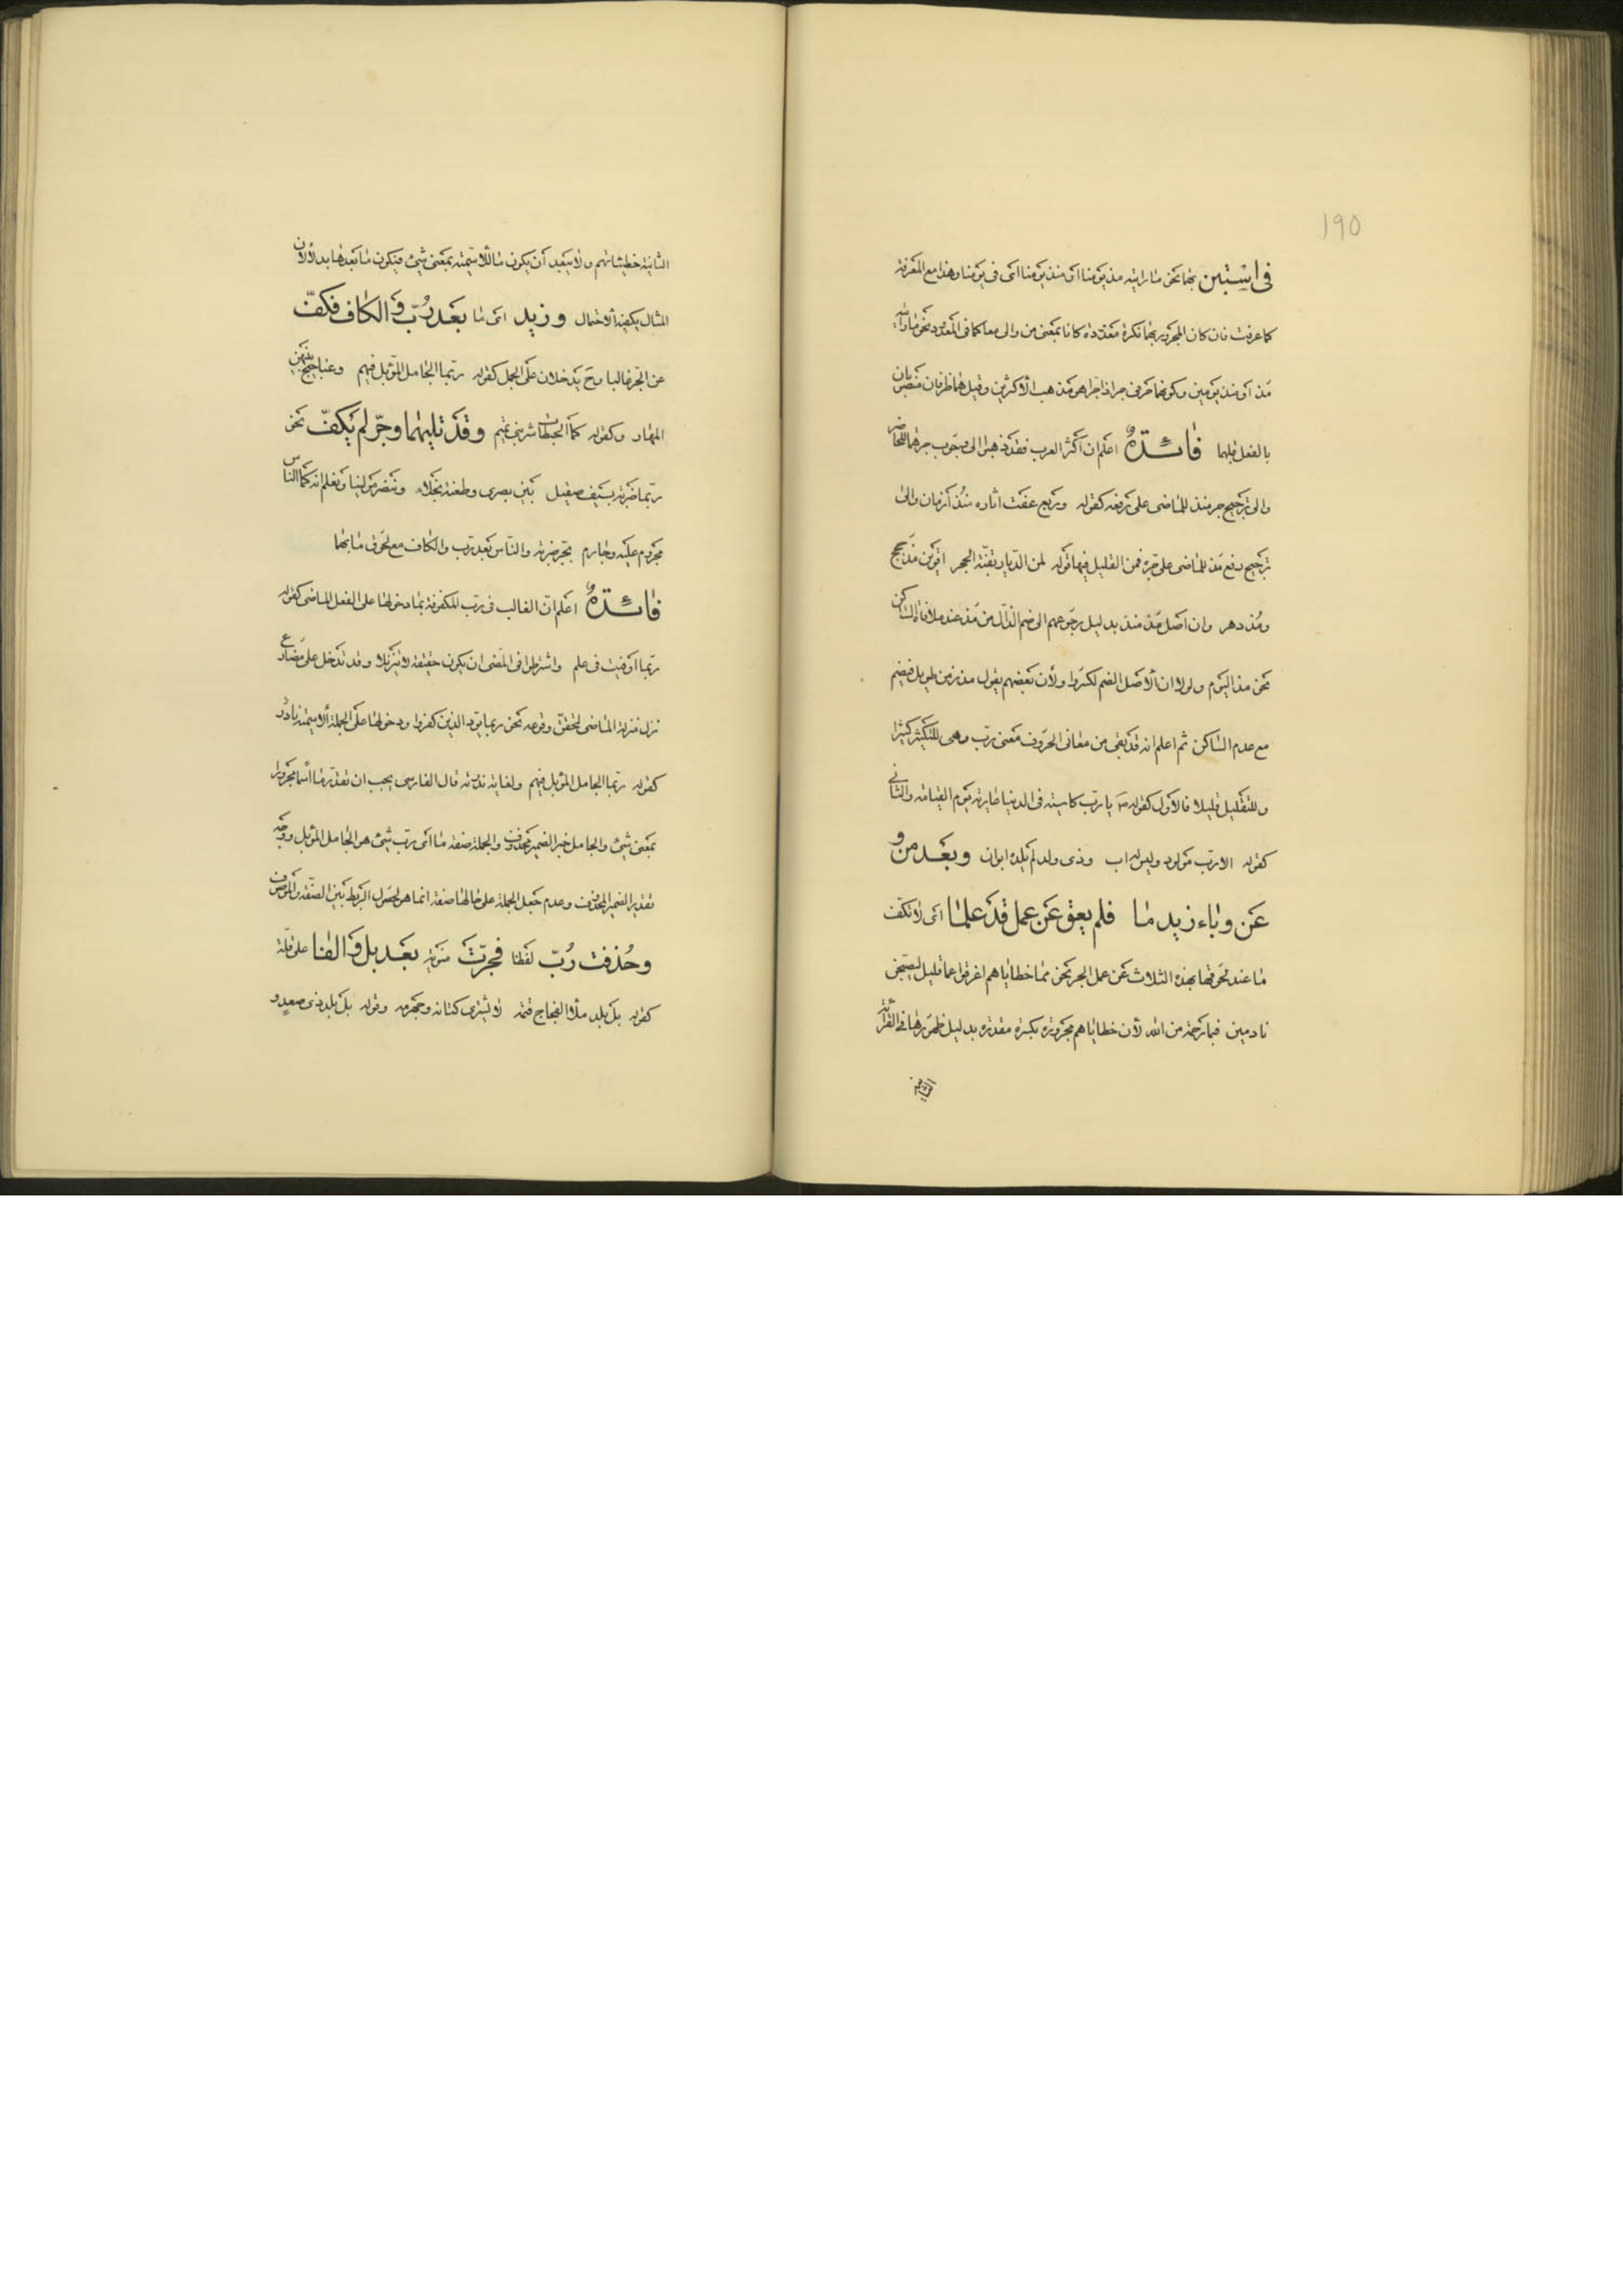 ١٩٥
فى استبن بهما نحو ما رايته مذ يومنا او منذ يومنا اى فى يومنا وهذا مع المعرفة
كما عرفت فان كان المجرور بهما نكرة معدودة كانا بمعنى من والى معا كما فى المعدود نحو ما رايته
مذ او منذ يومين وكونهما حرفى جر اذا جرا هو مذهب الأكثرين وقيل هما ظرفان منصوبان
بالفعل قبلهما فائدة اعلم ان اكثر العرب فقد ذهبوا الى وجوب جرهما للحاضر
والى ترجيح جر منذ للماضى على رفعه كقوله وربع عفت اثاره منذ أزمان والى
ترجيح رفع مذ للماضى على جره فمن القليل فيها قوله لمن الديار بقنة الحجر اقوين مذ حجج
ومذ دهر وان اصل مذ منذ بدليل رجوعهم الى ضم الذال من مذ عند ملاقاة الساكن
نحو مذ اليوم ولولا ان الأصل الضم لكسروا ولأن بعضهم يقول مذ زمن طويل فيضم
مع عدم الساكن ثم اعلم انه قد بقى من معانى الحروف معنى رب وهى للتكثير كثيرا
وللتقليل قليلا فالأول كقوله يا رب كاسية فى الدنيا عارية يوم القيامة والثانى
كقوله الا رب مولود وليس له اب وذى ولد لم يلده ابوان وبعد من و
عن وباء زيد ما فلم يعق عن عمل قد علما اى لا تكف
ما عند لحوقها بهذه الثلاث عن عمل الجر نحو مما خطاياهم اغرقوا عما قليل ليصبحن
نادمين فبما رحمة من الله لأن خطاياهم مجرورة بكسرة مقدرة بدليل ظهورها فى القرائة
الثانية خطيئاتهم ولا يبعد أن يكون ما للأسمية بمعنى شئ فيكون ما بعدها بدلا لأن
المثال يكفيه الاحتمال وزيد اى ما بعد رب والكاف فكف
عن الجر غالبا وح يدخلان على الجمل كقوله ربما الجامل المؤبل فيهم وعناجيج بينهن
المهار وكقوله كما الحبطات شر بنى تميم وقد تليهما وجر لم يكف نحو
ربما ضربة بسيف صقيل بين بصرى وطعنة نجلاء وننصر مولينا ونعلم انه كما الناس
مجروم عليه وجارم بجر ضربة والناس بعد رب والكاف مع لحوق ما بهما
فائدة اعلم ان الغالب فى رب المكفوفة بما دخولها على الفعل الماضى كقوله
ربما اوفيت فى علم واشترطوا فى المضى ان يكون حقيقة لا تنزيلا وقد تدخل على مضارع
نزل منزلة الماضى لتحقق وقوعه نحو ربما يود الذين كفروا ودخولها على الجملة الاسمية نادر
كقوله ربما الجامل المؤبل فيهم ولغاية ندرته قال الفارسى يجب ان تقدر ما اسما مجرورا
بمعنى شئ والجامل خبرا لضمير محذوف والجملة صفة ما اى رب شئ هو الجامل المؤبل ووجه
تقدير الضمير المحذوف وعدم جعل الجملة على حالها صفة انما هو لحصول الربط بين الصفة والموصوف
وحذفت رب لفظا فجرت منوية بعد بل والفا على قلة
كقوله بل بلد ملأ الفجاج قتمه لا يشترى كتانه وجهرمه وقوله بل بلد ذى صعد و